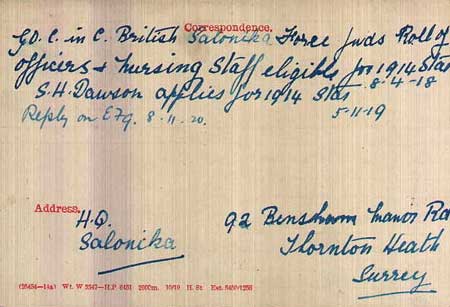 Correspondence.
G.O.C. in C. British Salonika Force fwds Roll of
Officers & Nursing Staff eligible for 1914 Star
8-4-18
S.H. Dawson applies for 1914 Star
5-11-19
Reply on E79. 8.11.20.
Address.
H.Q.
Salonika
92 Bensham Manor Rd
Thornton Heath
Surrey
(26454-14a) Wt. W 5547-H.P 6451 2000m. 10/19 H. St Est. 5400/1258